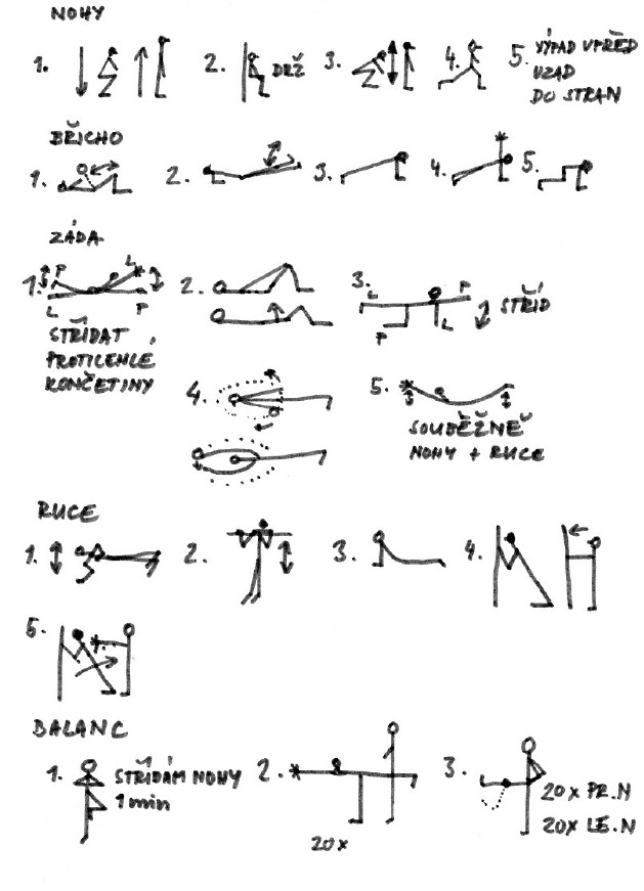 NOHY
1. 2. DRŽ 3. 4. 5. VÝPAD VPŘED
VZAD
DO STRAN
BŘICHO
1. 2. 3. 4. 5.
ZÁDA
1. P L L P 2. 3. L P P L STŘÍD
STŘÍDAT
PROTILEHLÉ
KONČETINY
4. 5.
SOUBĚŽNĚ
NOHY + RUCE
RUCE
1. 2. 3. 4.
5.
BALANC
1. STŘÍDÁM NOHY 2. 3.
1 min
20x
20x PR.N
20x LE.N